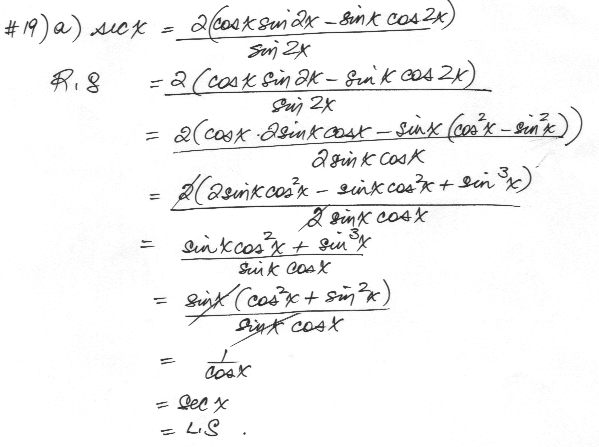 #19) a) sec x = 2(cos x sin 2x − sin x cos 2x) / sin 2x
R.S = 2(cos x sin 2x − sin x cos 2x) / sin 2x
= 2(cos x · 2 sin x cos x − sin x (cos²x − sin²x)) / 2 sin x cos x
= 2(2 sin x cos²x − sin x cos²x + sin³x) / 2 sin x cos x
= sin x cos²x + sin³x / sin x cos x
= sin x (cos²x + sin²x) / sin x cos x
= 1 / cos x
= sec x
= L.S .